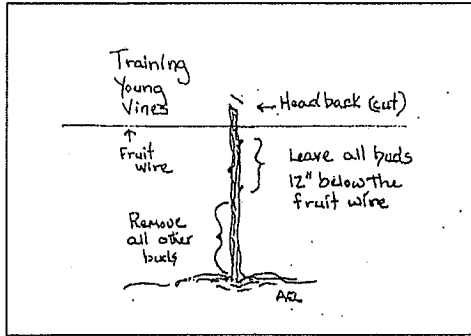 Training
Young
Vines
← Head back (cut)
↑
Fruit
wire
Leave all buds
12" below the
fruit wire
Remove
all other
buds